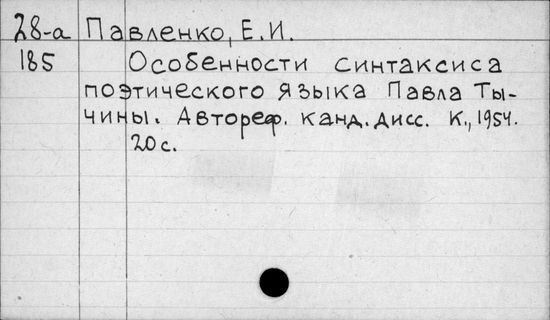 28-а Павленко, Е.И.
185 Особенности синтаксиса
поэтического языка Павла Ты-
чины. Автореф. канд. дисс. К., 1954.
20 с.